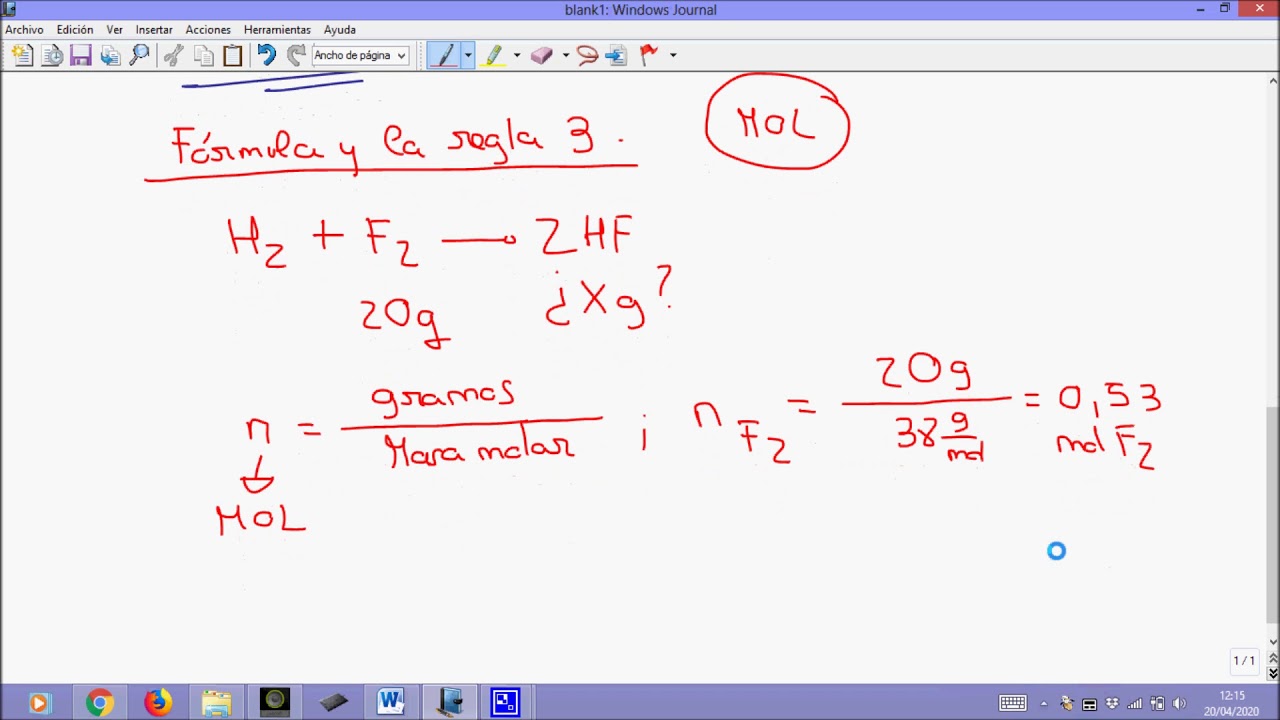 blank1: Windows Journal
Archivo Edición Ver Insertar Acciones Herramientas Ayuda
Ancho de página
MOL
Fórmula y la regla 3.
H2 + F2 → 2HF
20g ¿Xg?
n = gramos / Masa molar ; nF2 = 20g / 38 g/mol = 0,53 mol F2
MOL
1 / 1
12:15
20/04/2020